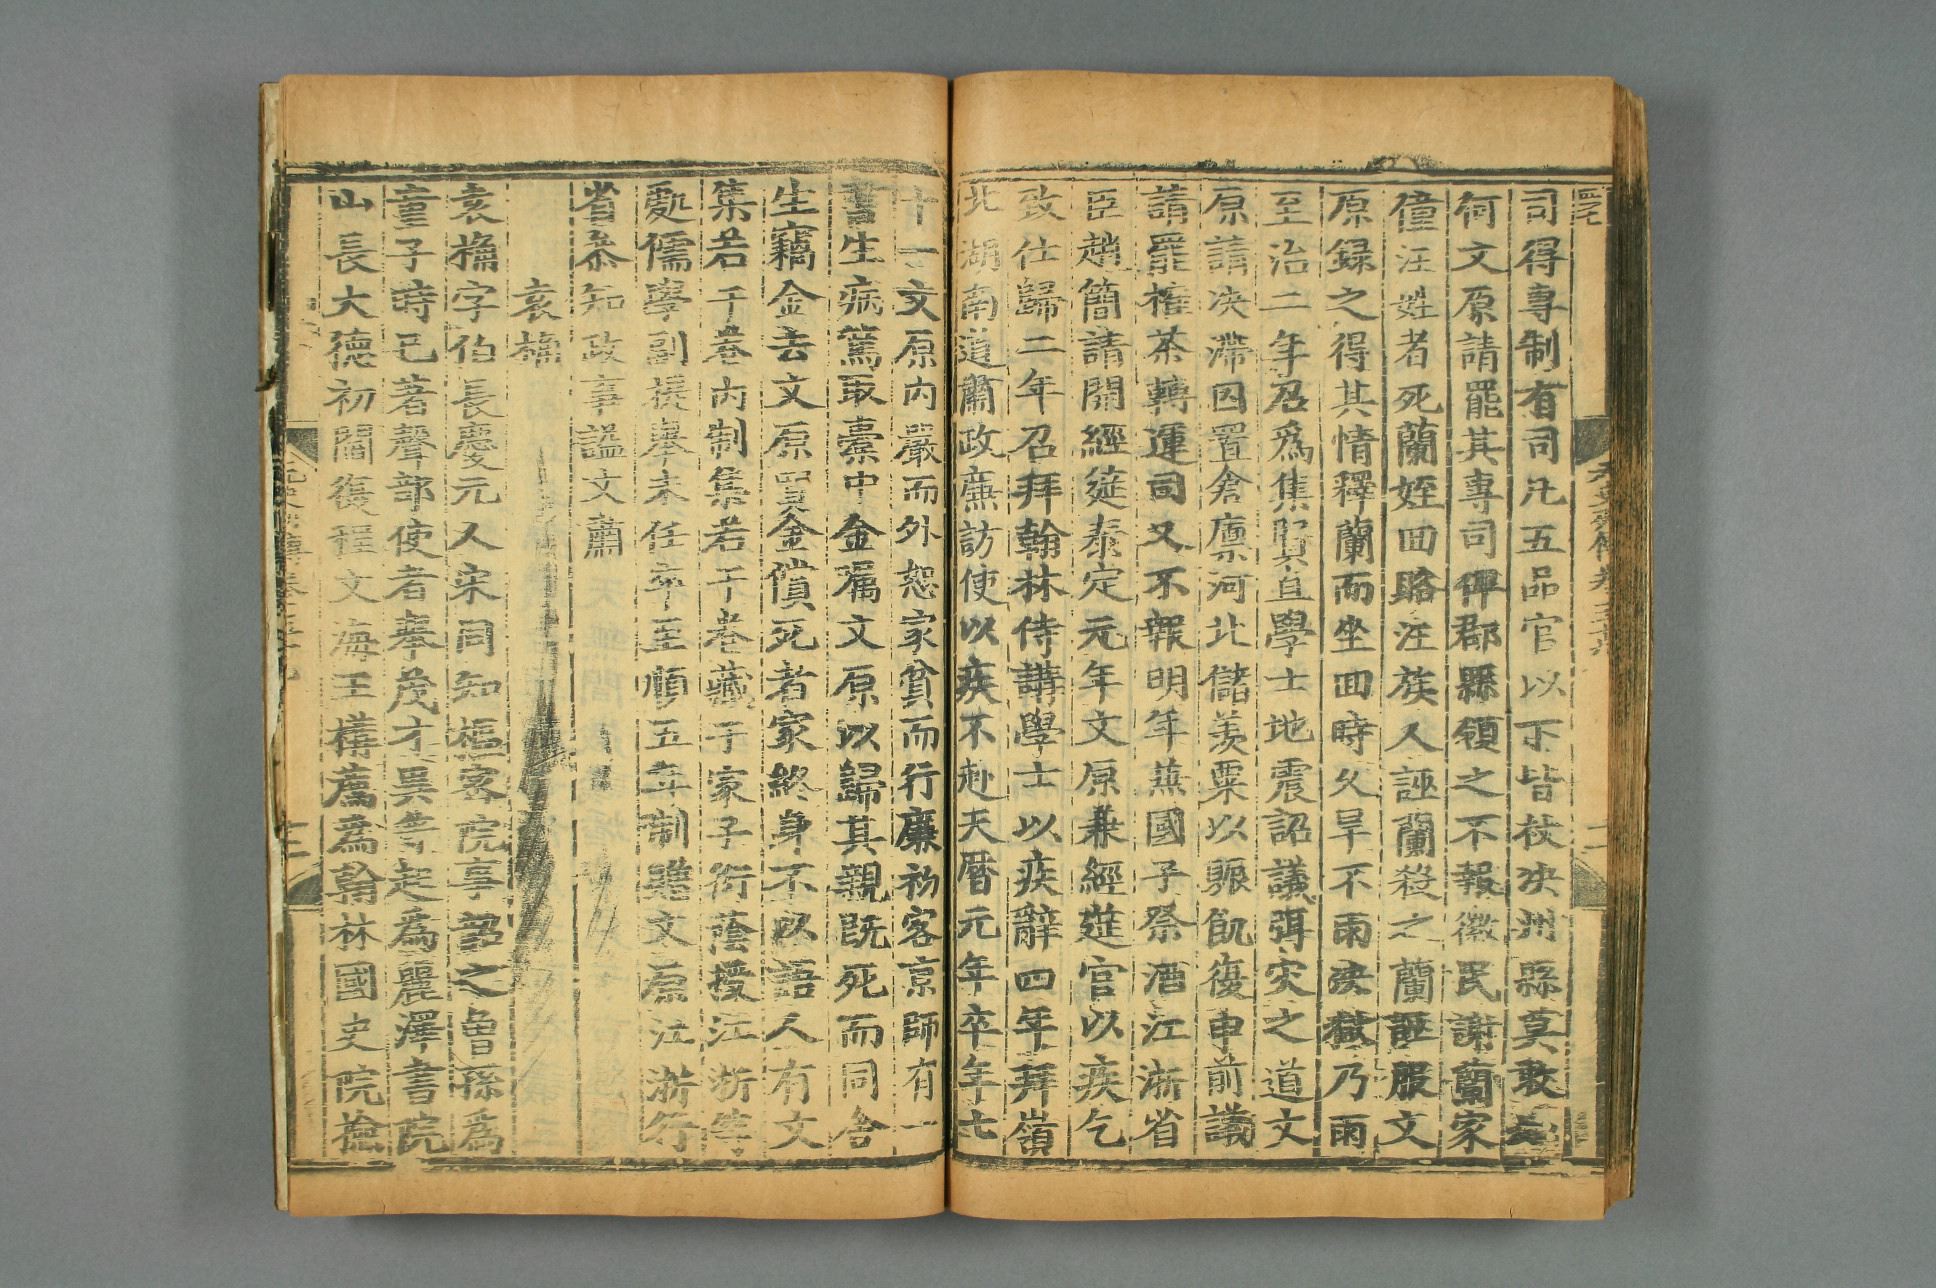 司得專制有司凡五品官以下皆杖决州縣莫敢
何文原請罷其專司俾郡縣領之不報徽民謝蘭家
僮汪姓者死蘭姪回賂汪族人誣蘭殺之蘭誣服文
原録之得其情釋蘭而坐回時久旱不雨决獄乃雨
至治二年召爲集賢直學士地震詔議弭灾之道文
原請决滯囚置倉廪河北儲羨粟以賑飢復申前議
請罷榷茶轉運司又不報明年兼國子祭酒江浙省
臣趙簡請開經筵泰定元年文原兼經筵官以疾乞
致仕歸二年召拜翰林侍講學士以疾辭四年拜嶺
北湖南道肅政廉訪使以疾不赴天曆元年卒年七
十一文原内嚴而外恕家貧而行廉初客京師有一
書生病篤取橐中金屬文原以歸其親既死而同舍
生竊金去文原買金償死者家終身不以語人有文
集若干卷内制集若干卷藏于家子衍蔭授江浙等
處儒學副提舉未任卒至順五年制贈文原江浙行
省叅知政事謚文肅
袁桷
袁桷字伯長慶元人宋同知樞密院事韶之曾孫爲
童子時已著聲部使者舉茂才異等起爲麗澤書院
山長大德初閻復程文海王構薦爲翰林國史院檢